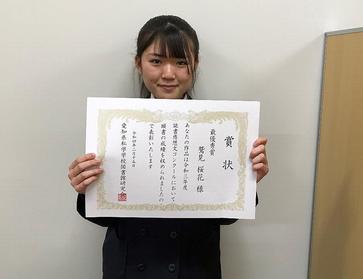 賞状
最優秀賞
鷲見 桜花 様
あなたの作品は令和三年度
読書感想文コンクールにおいて
頭書の成績を収められましたの
で表彰いたします
令和四年二月十五日
愛知県私学学校図書館研究会